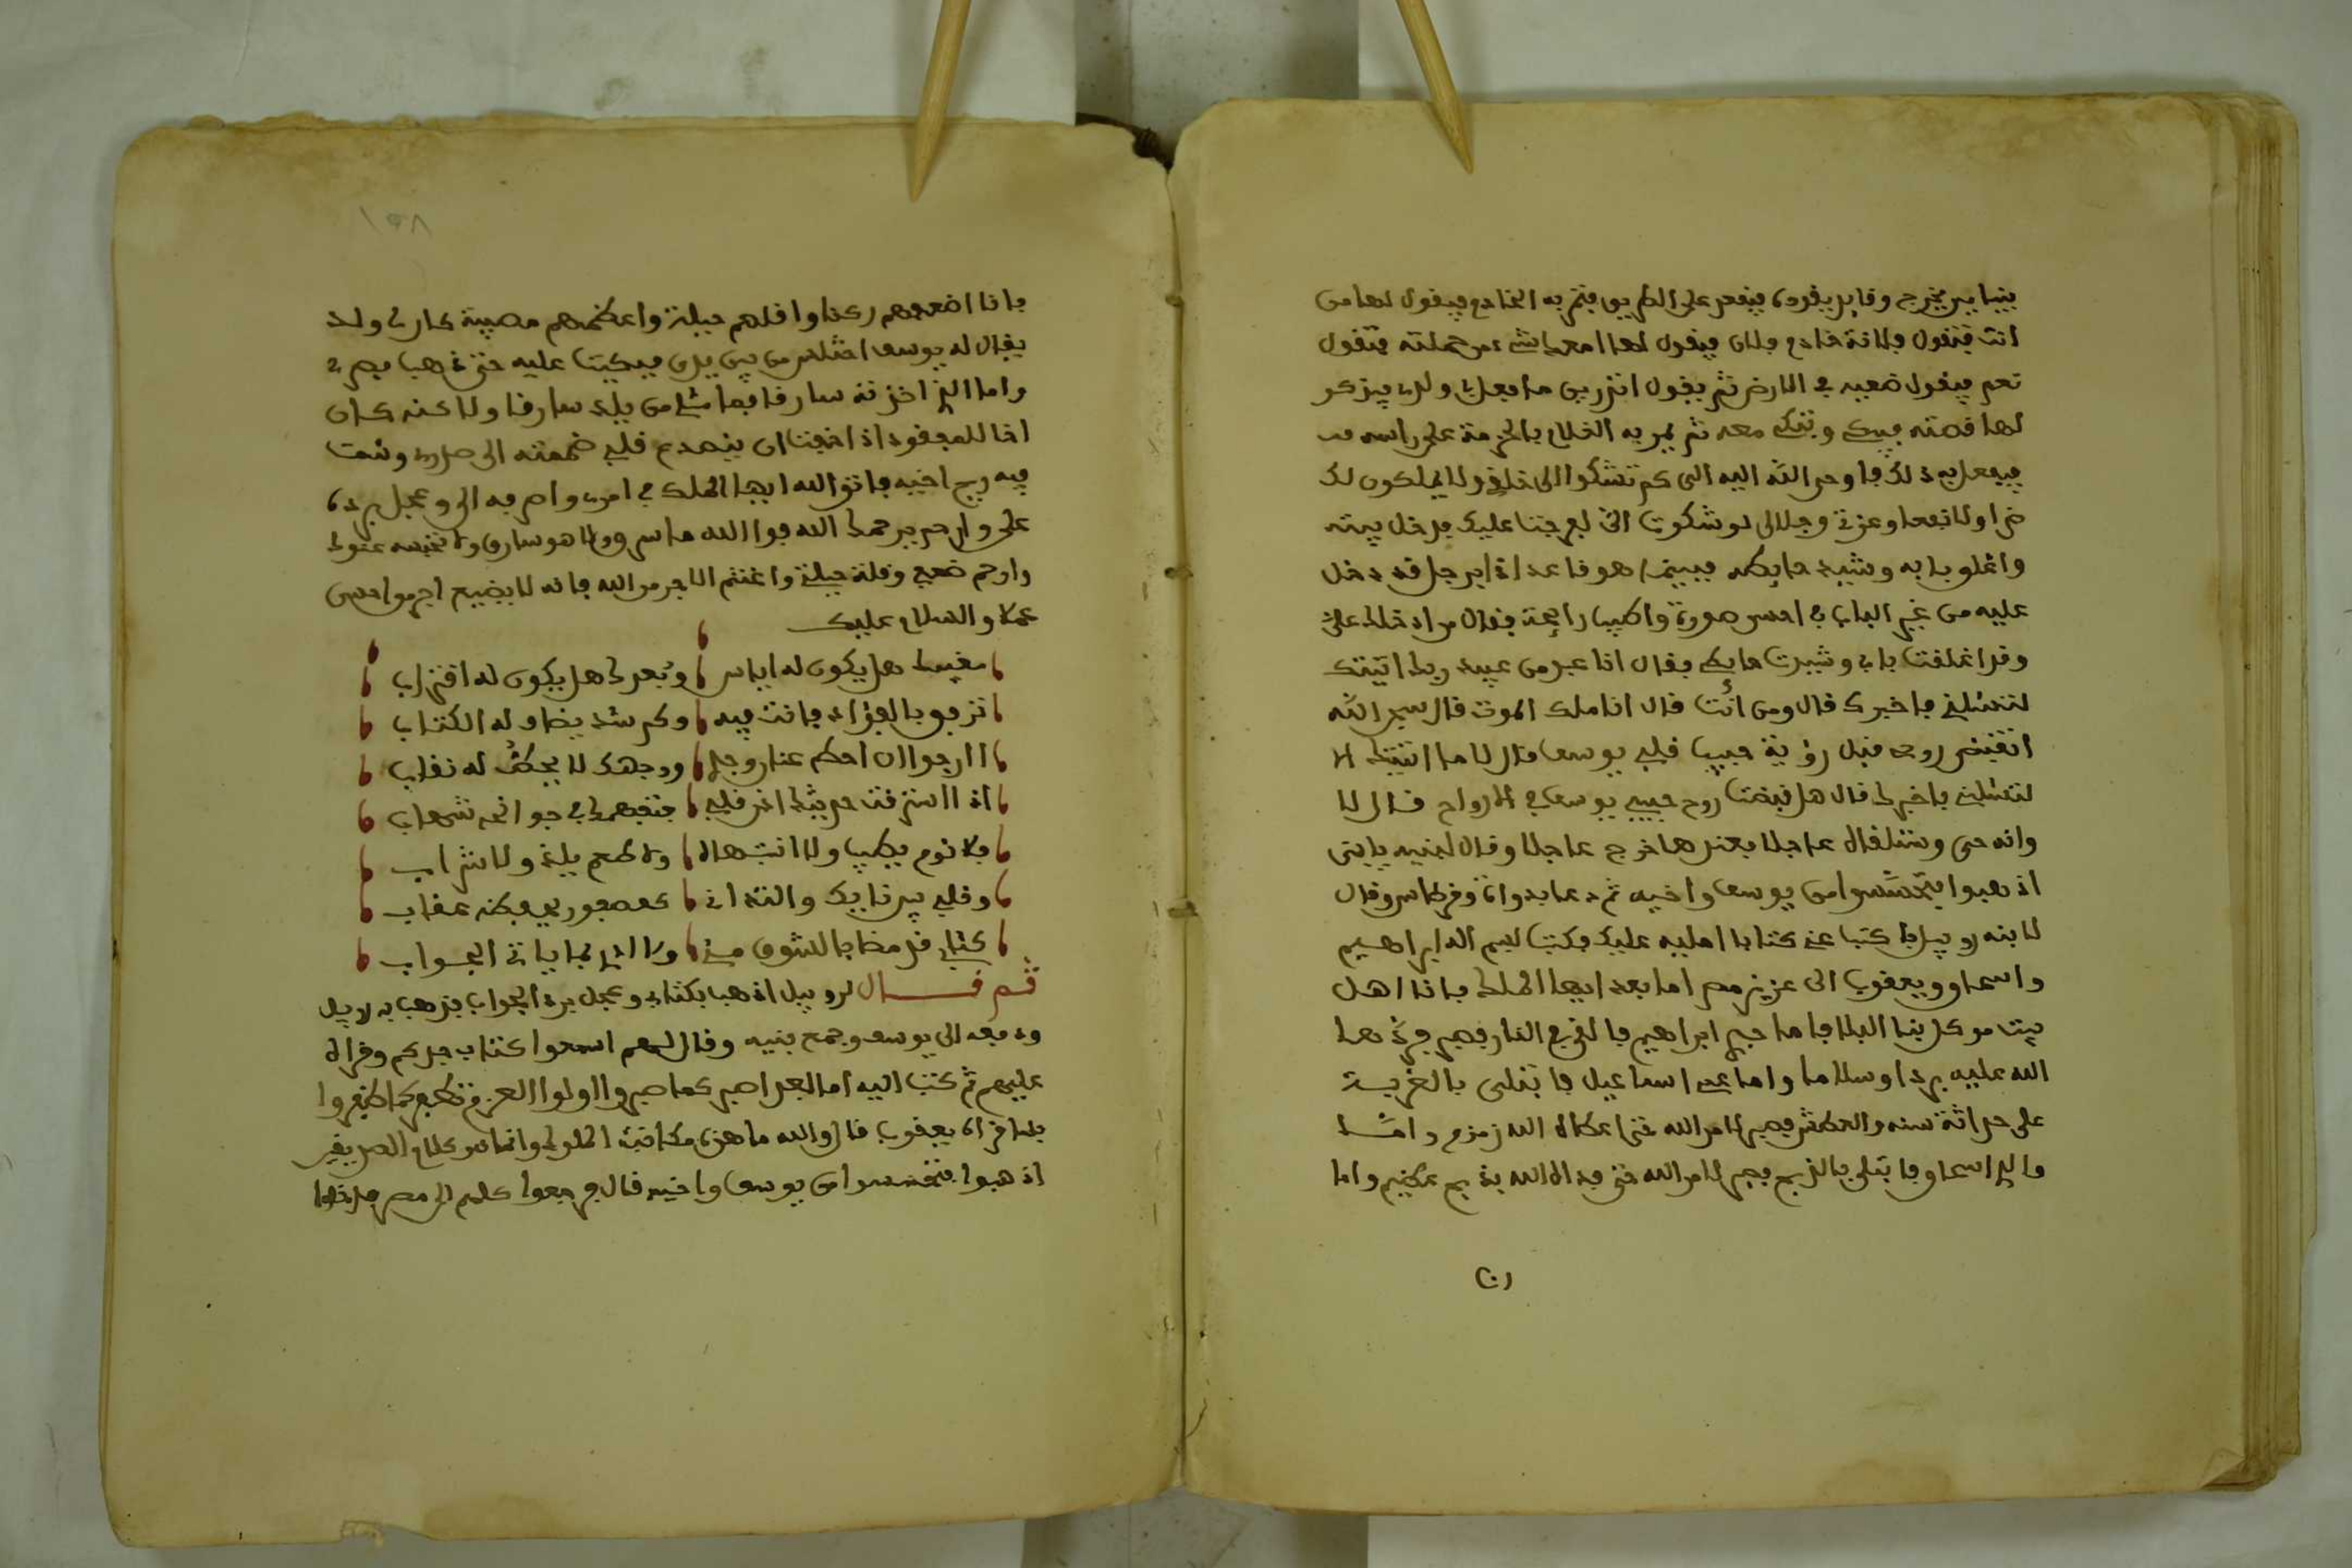 بنيامين يخرج وقايد يقوده فيقعد على الطريق فتمر به الخادم فيقول لها من
انت فتقول فلانة خادم فلان فيقول لها امعك شيء من حملته فتقول
نعم فيقول ضعيه في الارض ثم يقول اتدرين ما فعل ولدي فيذكر
لها قصته فيبكي وتبكي معه ثم يمر به الغلام بالحزمة على راسه
فيفعل به ذلك فاوحى الله اليه الى كم تشكوا الى خلقي ولا يملكون لك
ضرا ولا نفعا وعزتي وجلالي لو شكوت الي لفرجنا عليك فدخل بيته
واغلق بابه وشيد حايطه فبينما هو قاعد اذا برجل قد دخل
عليه من غير الباب في احسن صورة واطيب رايحة فقال من ادخلك علي
وقد اغلقت بابي وشيدت حايطي فقال انا عبد من عبيد ربك اتيتك
لتسئلني فاخبرك قال ومن انت قال انا ملك الموت قال سبحان الله
اتقبض روحي قبل رؤية حبيب قلبي يوسف قال لا ما اتيتك الا
لتسئلني فاخبرك قال هل قبضت روح حبيبي يوسف في الارواح قال لا
وانه حي وستلقاه عاجلا فعندها خرج عاجلا وقال لبنيه يا بني
اذهبوا فتحسسوا من يوسف واخيه ثم دعا بدواة وقرطاس وقال
لابنه روبيل اكتب عني كتابا امليه عليك فكتب اله ابراهيم
واسحاق ويعقوب الى عزيز مصر اما بعد ايها الملك فانا اهل
بيت موكل بنا البلا فاما جدي ابراهيم فالقي في النار فصبر فردها
الله عليه بردا وسلاما واما عمي اسماعيل فابتلي بالغربة
على حداثة سنه والعطش فصبر لامر الله حتى اعطاه الله زمزم واما
والدي اسحاق فابتلي بالذبح فصبر لامر الله حتى فداه الله بذبح عظيم واما
انا
١٥٨
فانا اضعفهم ركنا واقلهم حيلة واعظمهم مصيبة كان لي ولد
يقال له يوسف اختلس من بين يدي فبكيت عليه حتى ذهب بصري
واما الذي اخذته سارقا فما شيء من بلدي سارقا ولاكنه كان
اخا للمفقود اذا خفت ان ينهدم قلبي ضممته الى صدري وشمت
فيه ريح اخيه فاتق الله ايها الملك في امري واصرفه الي وعجل برده
علي وارحم يرحمك الله فوالله ما سرق ولا هو سارق ولا تحبسه عنك
وارحم ضعفي وقلة حيلتي واغتنم الاجر من الله فانه لا يضيع اجر من احسن
عملا والسلام عليك
مغيبك هل يكون له اياس وبعدك هل يكون له اقتراب
نزفوا بالفؤاد فانت فيه وكم شد يضا وله الكتاب
اارجوا ان احط عنا روحلي ووجهك لا يحط له نقاب
اذا استرقت حديثك اخر قلبي فتقهرك في جوانحي شهاب
فلا نوم يطيب ولا انتباه ولا طعم يلذ ولا شراب
وقلبي بين نايك والتداني كعصفور يعيكنه عقاب
كتابي قد مضا بالشوق مني ولا ادري بما ياتي الجواب
ثم قال لروبيل اذهب بكتابي وعجل برد الجواب فذهب به روبيل
ودفعه الى يوسف وجمع بنيه وقال لهم اسمعوا كتاب جدكم وقراه
عليهم ثم كتب اليه اما بعد اصبر كما صبروا اولوا العزم تظفر كما ظفروا
فلما قراه يعقوب قال والله ما هذه مكاتبة الملوك وانما هو كلام الصديقين
اذهبوا فتحسسوا من يوسف واخيه قال فرجعوا كلهم الى مصر فدخلوا